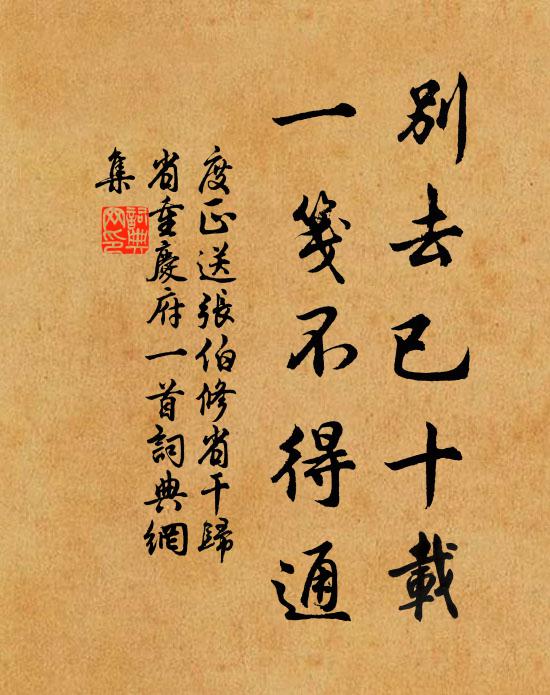 别去已十載
一箋不得通
度正送張伯修省干歸
省重慶府一首詞典網
集
詞典
网印